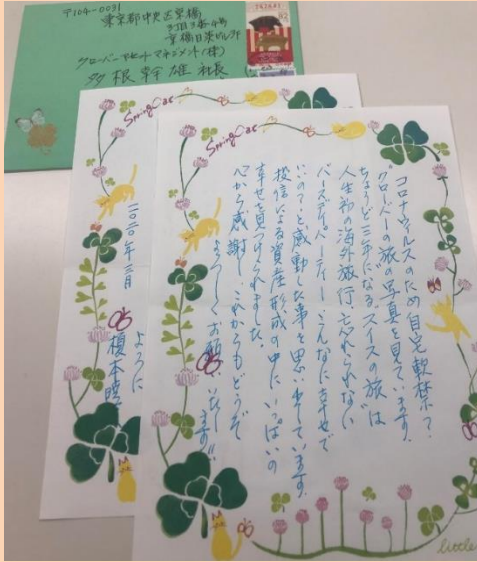 〒104-0031
東京都中央区京橋
3丁目3番4号
京橋日英ビル3F
クローバーアセットマネジメント(株)
多根幹雄社長
Spring Cat
Spring Cat
コロナウィルスのため自宅軟禁?
クローバーの旅の写真を見ています。
ちょうど三年になるスイスの旅は
人生初の海外旅行、忘れられない
バースディパーティー、こんなに幸せで
いいの?と感動した事を思い出しています。
投信による資産形成の中にいっぱいの
幸せを見つけられました。
心から感謝し、これからもどうぞ
よろしくお願いいたします!!
二〇二〇年三月
榎本
little